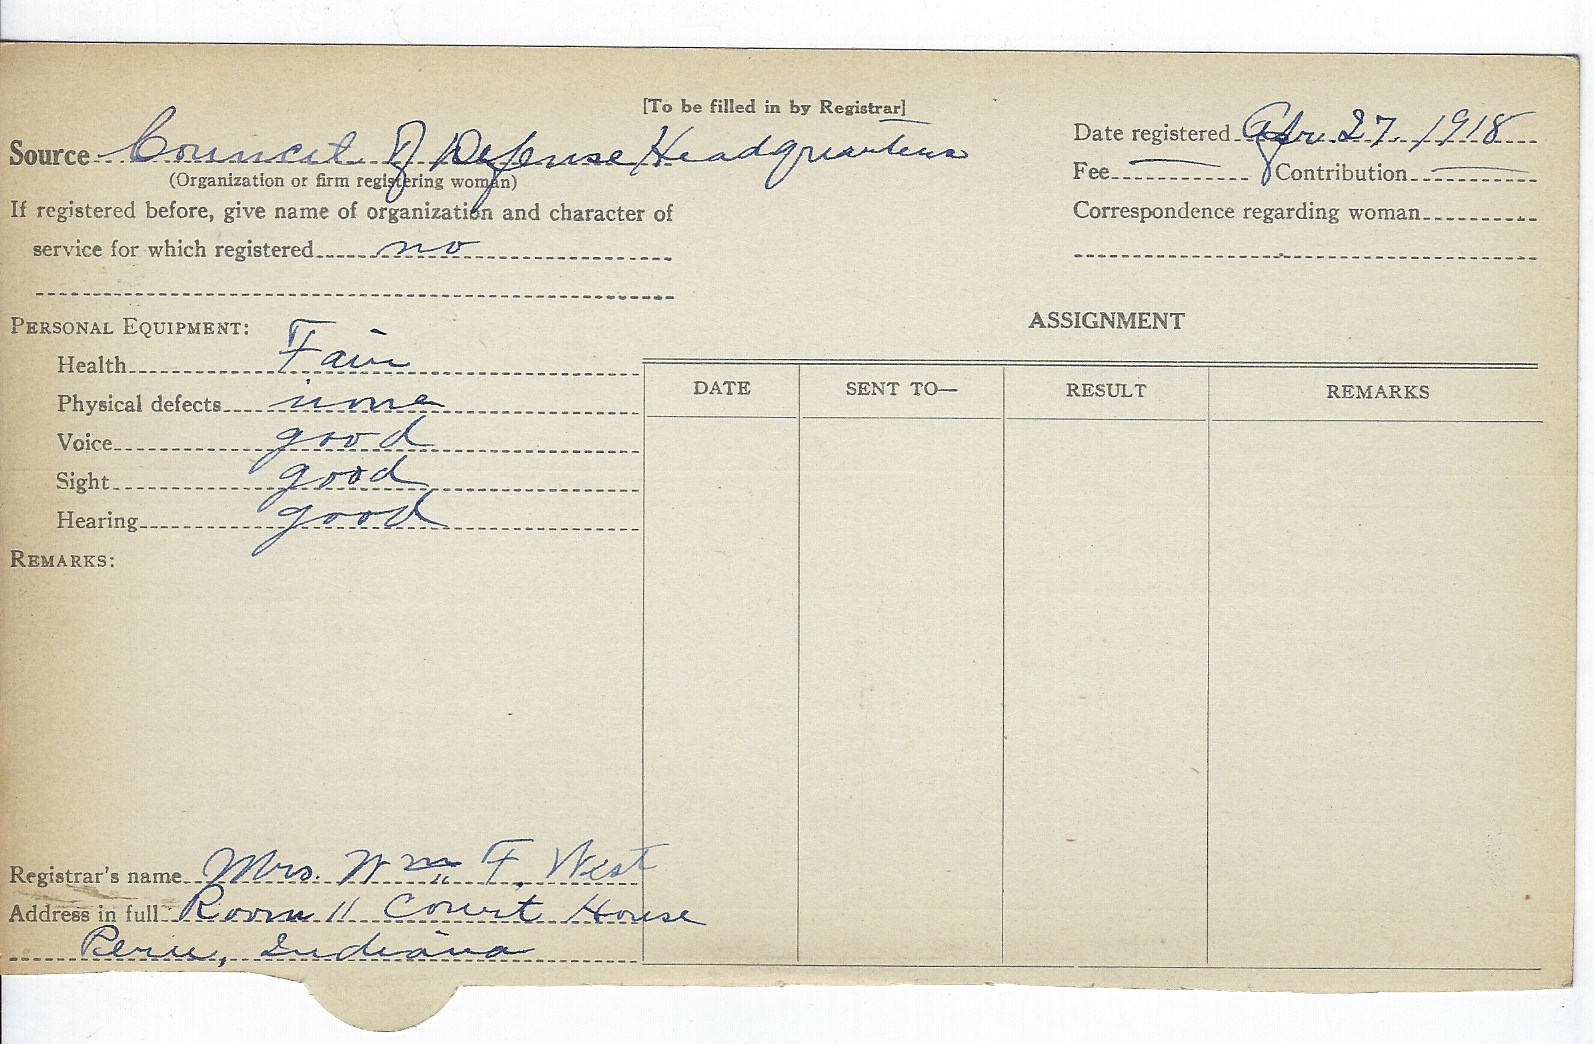 [To be filled in by Registrar]
Source Council of Defense Headquarters
(Organization or firm registering woman)
If registered before, give name of organization and character of
service for which registered no
Date registered Apr. 27, 1918
Fee — Contribution —
Correspondence regarding woman
PERSONAL EQUIPMENT:
Health Fair
Physical defects none
Voice good
Sight good
Hearing good
REMARKS:
ASSIGNMENT
DATE SENT TO— RESULT REMARKS
Registrar's name Mrs. Wm F. West
Address in full Room 11 Court House
Peru, Indiana